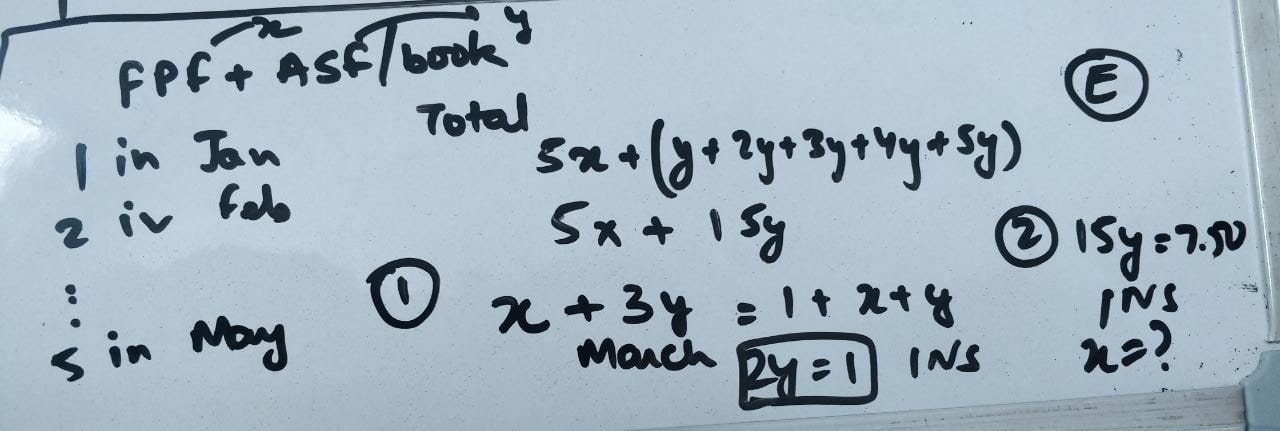 x y
FPF + ASF/book
Total
1 in Jan
5x + (y + 2y + 3y + 4y + 5y)
E
2 in Feb
5x + 15y
② 15y = 7.50
:
① x + 3y = 1 + x + y
INS
5 in May
March 2y = 1 INS
x = ?